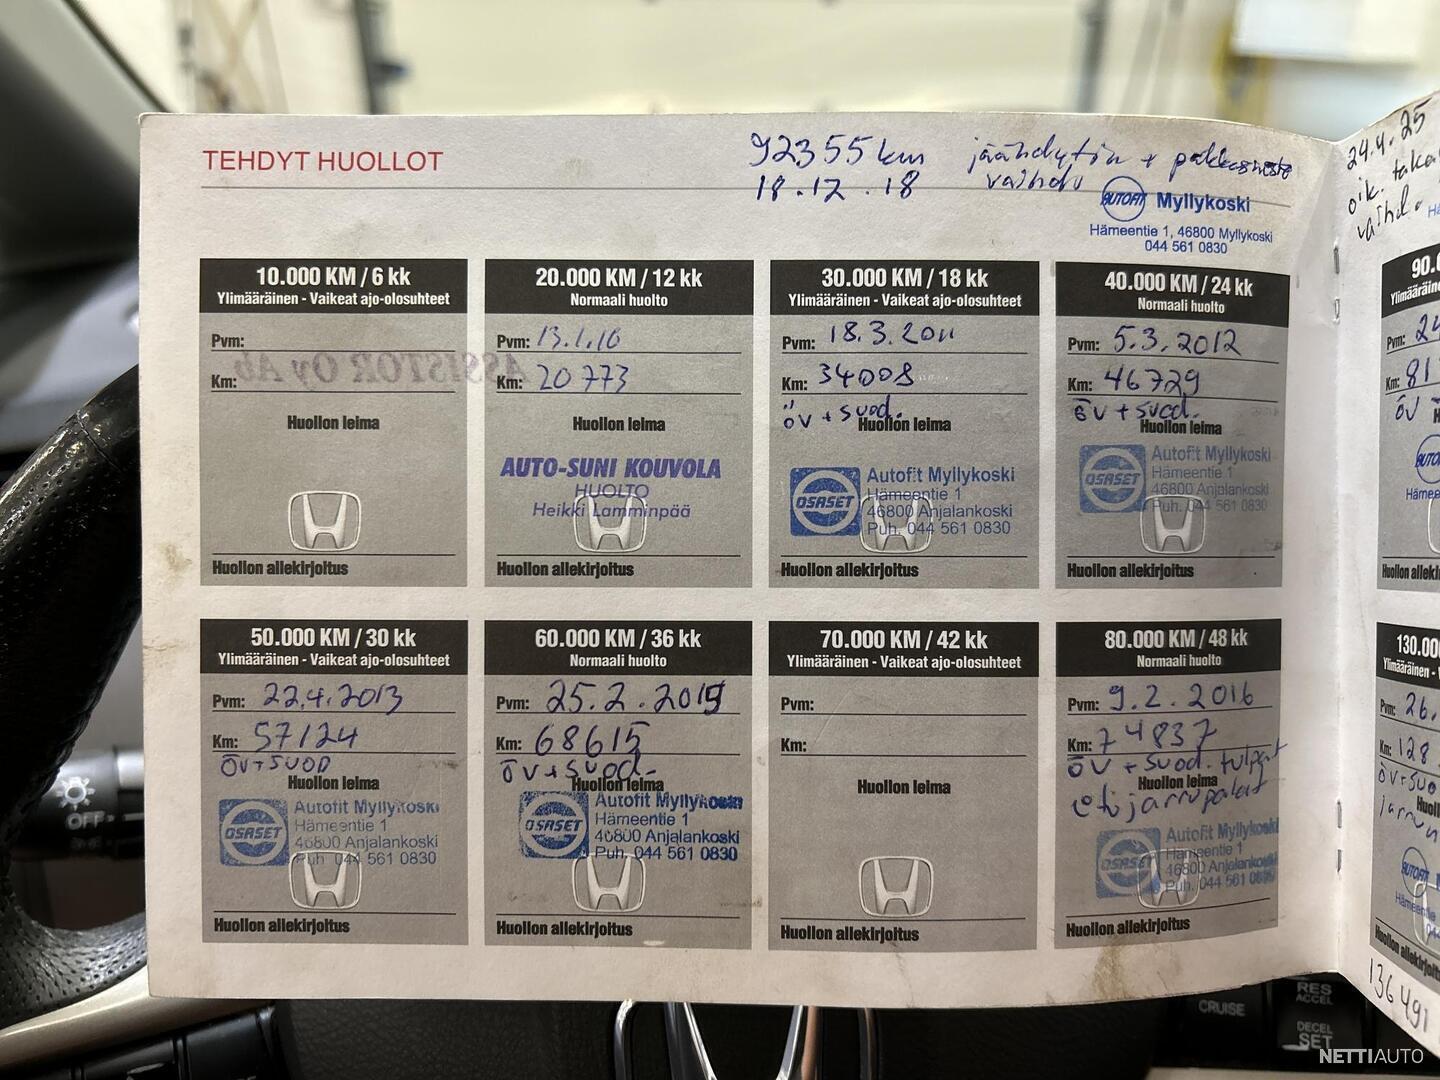 TEHDYT HUOLLOT
92355 km jäähdytin + pakkasneste
18.12.18 vaihdu
AUTOFIT Myllykoski
Hämeentie 1, 46800 Myllykoski
044 561 0830
10.000 KM / 6 kk
Ylimääräinen - Vaikeat ajo-olosuhteet
Pvm:
ASSISTOR Oy Ab
Km:
Huollon leima
Huollon allekirjoitus
20.000 KM / 12 kk
Normaali huolto
Pvm: 13.1.10
Km: 20 773
Huollon leima
AUTO-SUNI KOUVOLA
HUOLTO
Heikki Lamminpää
Huollon allekirjoitus
30.000 KM / 18 kk
Ylimääräinen - Vaikeat ajo-olosuhteet
Pvm: 18.3.2011
Km: 34008
öv + suod.
Huollon leima
OSASET
Autofit Myllykoski
Hämeentie 1
46800 Anjalankoski
Puh. 044 561 0830
Huollon allekirjoitus
40.000 KM / 24 kk
Normaali huolto
Pvm: 5.3.2012
Km: 46729
öv + suod.
Huollon leima
OSASET
Autofit Myllykoski
Hämeentie 1
46800 Anjalankoski
Puh. 044 561 0830
Huollon allekirjoitus
50.000 KM / 30 kk
Ylimääräinen - Vaikeat ajo-olosuhteet
Pvm: 22.4.2013
Km: 57124
öv + suod
Huollon leima
OSASET
Autofit Myllykoski
Hämeentie 1
46800 Anjalankoski
Puh 044 561 0830
Huollon allekirjoitus
60.000 KM / 36 kk
Normaali huolto
Pvm: 25.2.2015
Km: 68615
öv + suod.
Huollon leima
OSASET
Autofit Myllykoski
Hämeentie 1
46800 Anjalankoski
Puh. 044 561 0830
Huollon allekirjoitus
70.000 KM / 42 kk
Ylimääräinen - Vaikeat ajo-olosuhteet
Pvm:
Km:
Huollon leima
Huollon allekirjoitus
80.000 KM / 48 kk
Normaali huolto
Pvm: 9.2.2016
Km: 74837
öv + suod. tulpat
Huollon leima
etujarrupalat
OSASET
Autofit Myllykoski
Hämeentie 1
46800 Anjalankoski
Puh. 044 561 0830
Huollon allekirjoitus
24.4.25
oik. taka
vaihd.
90.
Ylimääräin
Pvm: 24
Km: 81
öv
AUTO
Hämee
Huollon alleki
130.00
Ylimääräinen -
Pvm: 26.
Km: 128
öv + suo
Huol
AUTOFIT
Huollon allekirjoit
136 491
OFF
CRUISE
RES
ACCEL
DECEL
SET
NETTIAUTO